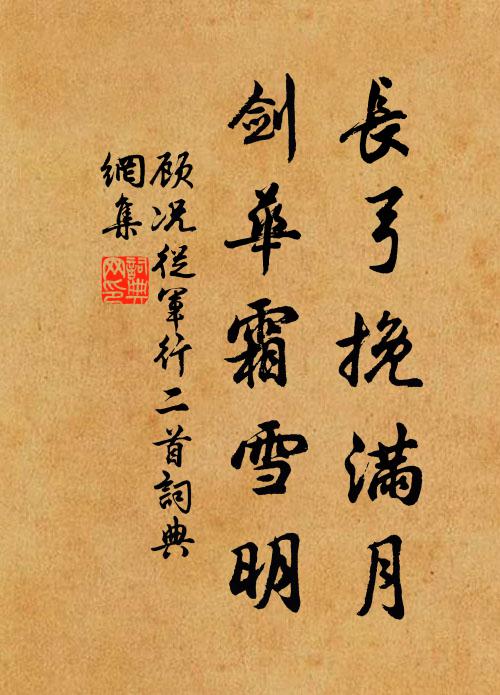 長弓挽滿月
劍華霜雪明
顾况從軍行二首詞典
網集
詞典網印